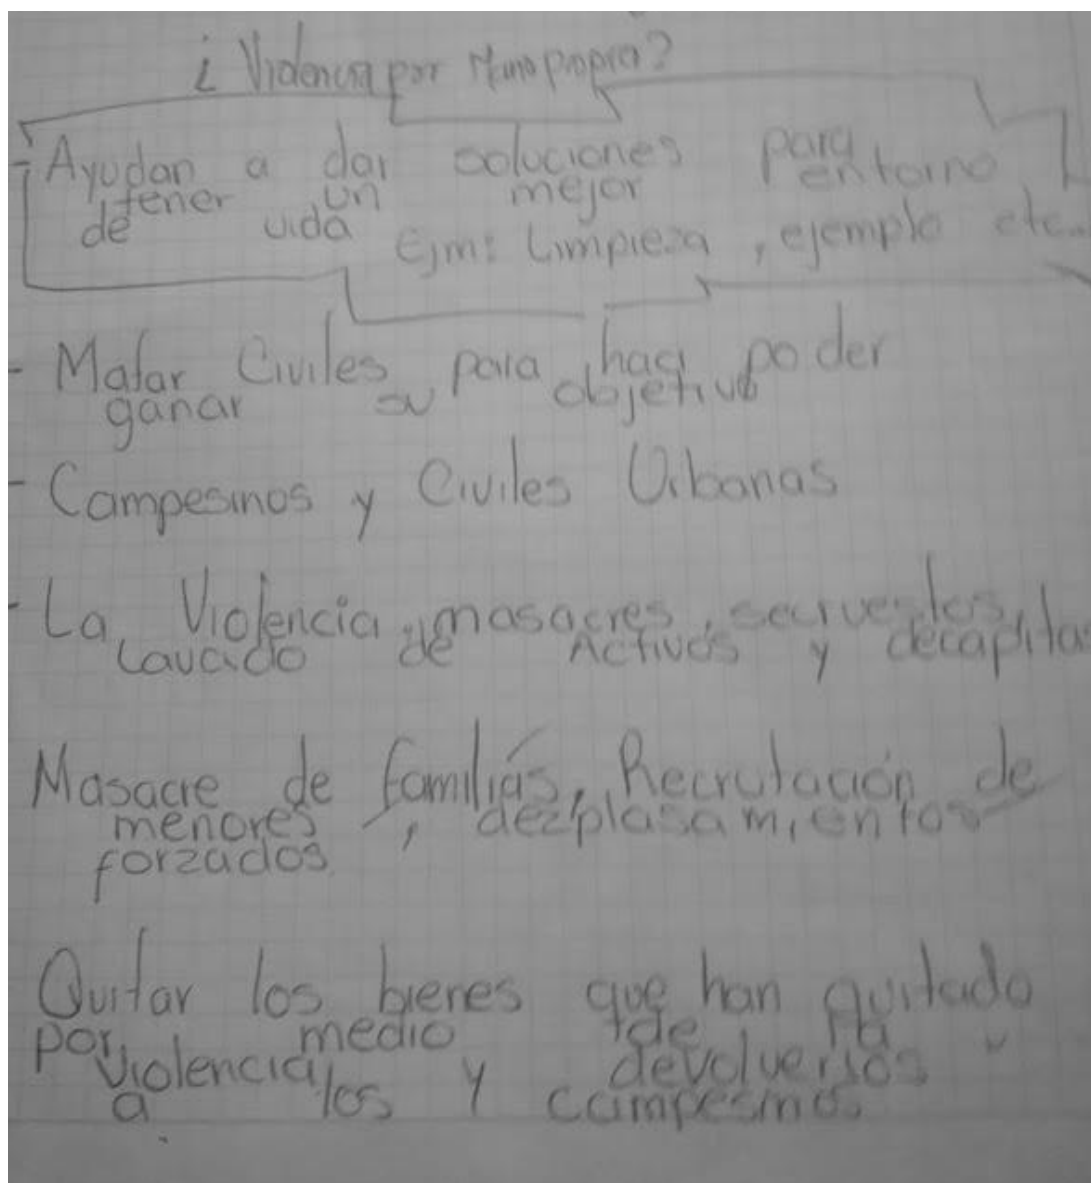 ¿Violencia por Mano propia?
- Ayudan a dar soluciones para
tener un mejor entorno
de vida Ejm: Limpieza, ejemplo etc..
- Matar Civiles para haci poder
ganar su objetivo
- Campesinos y Civiles Urbanas
- La Violencia, masacres, secuestos,
Lavado de Activos y decapita
Masacre de familias, Recrutación de
menores, dezplasamientos
forzados
Quitar los bienes que han quitado
por medio de la
violencia y devolverlos
a los campesinos